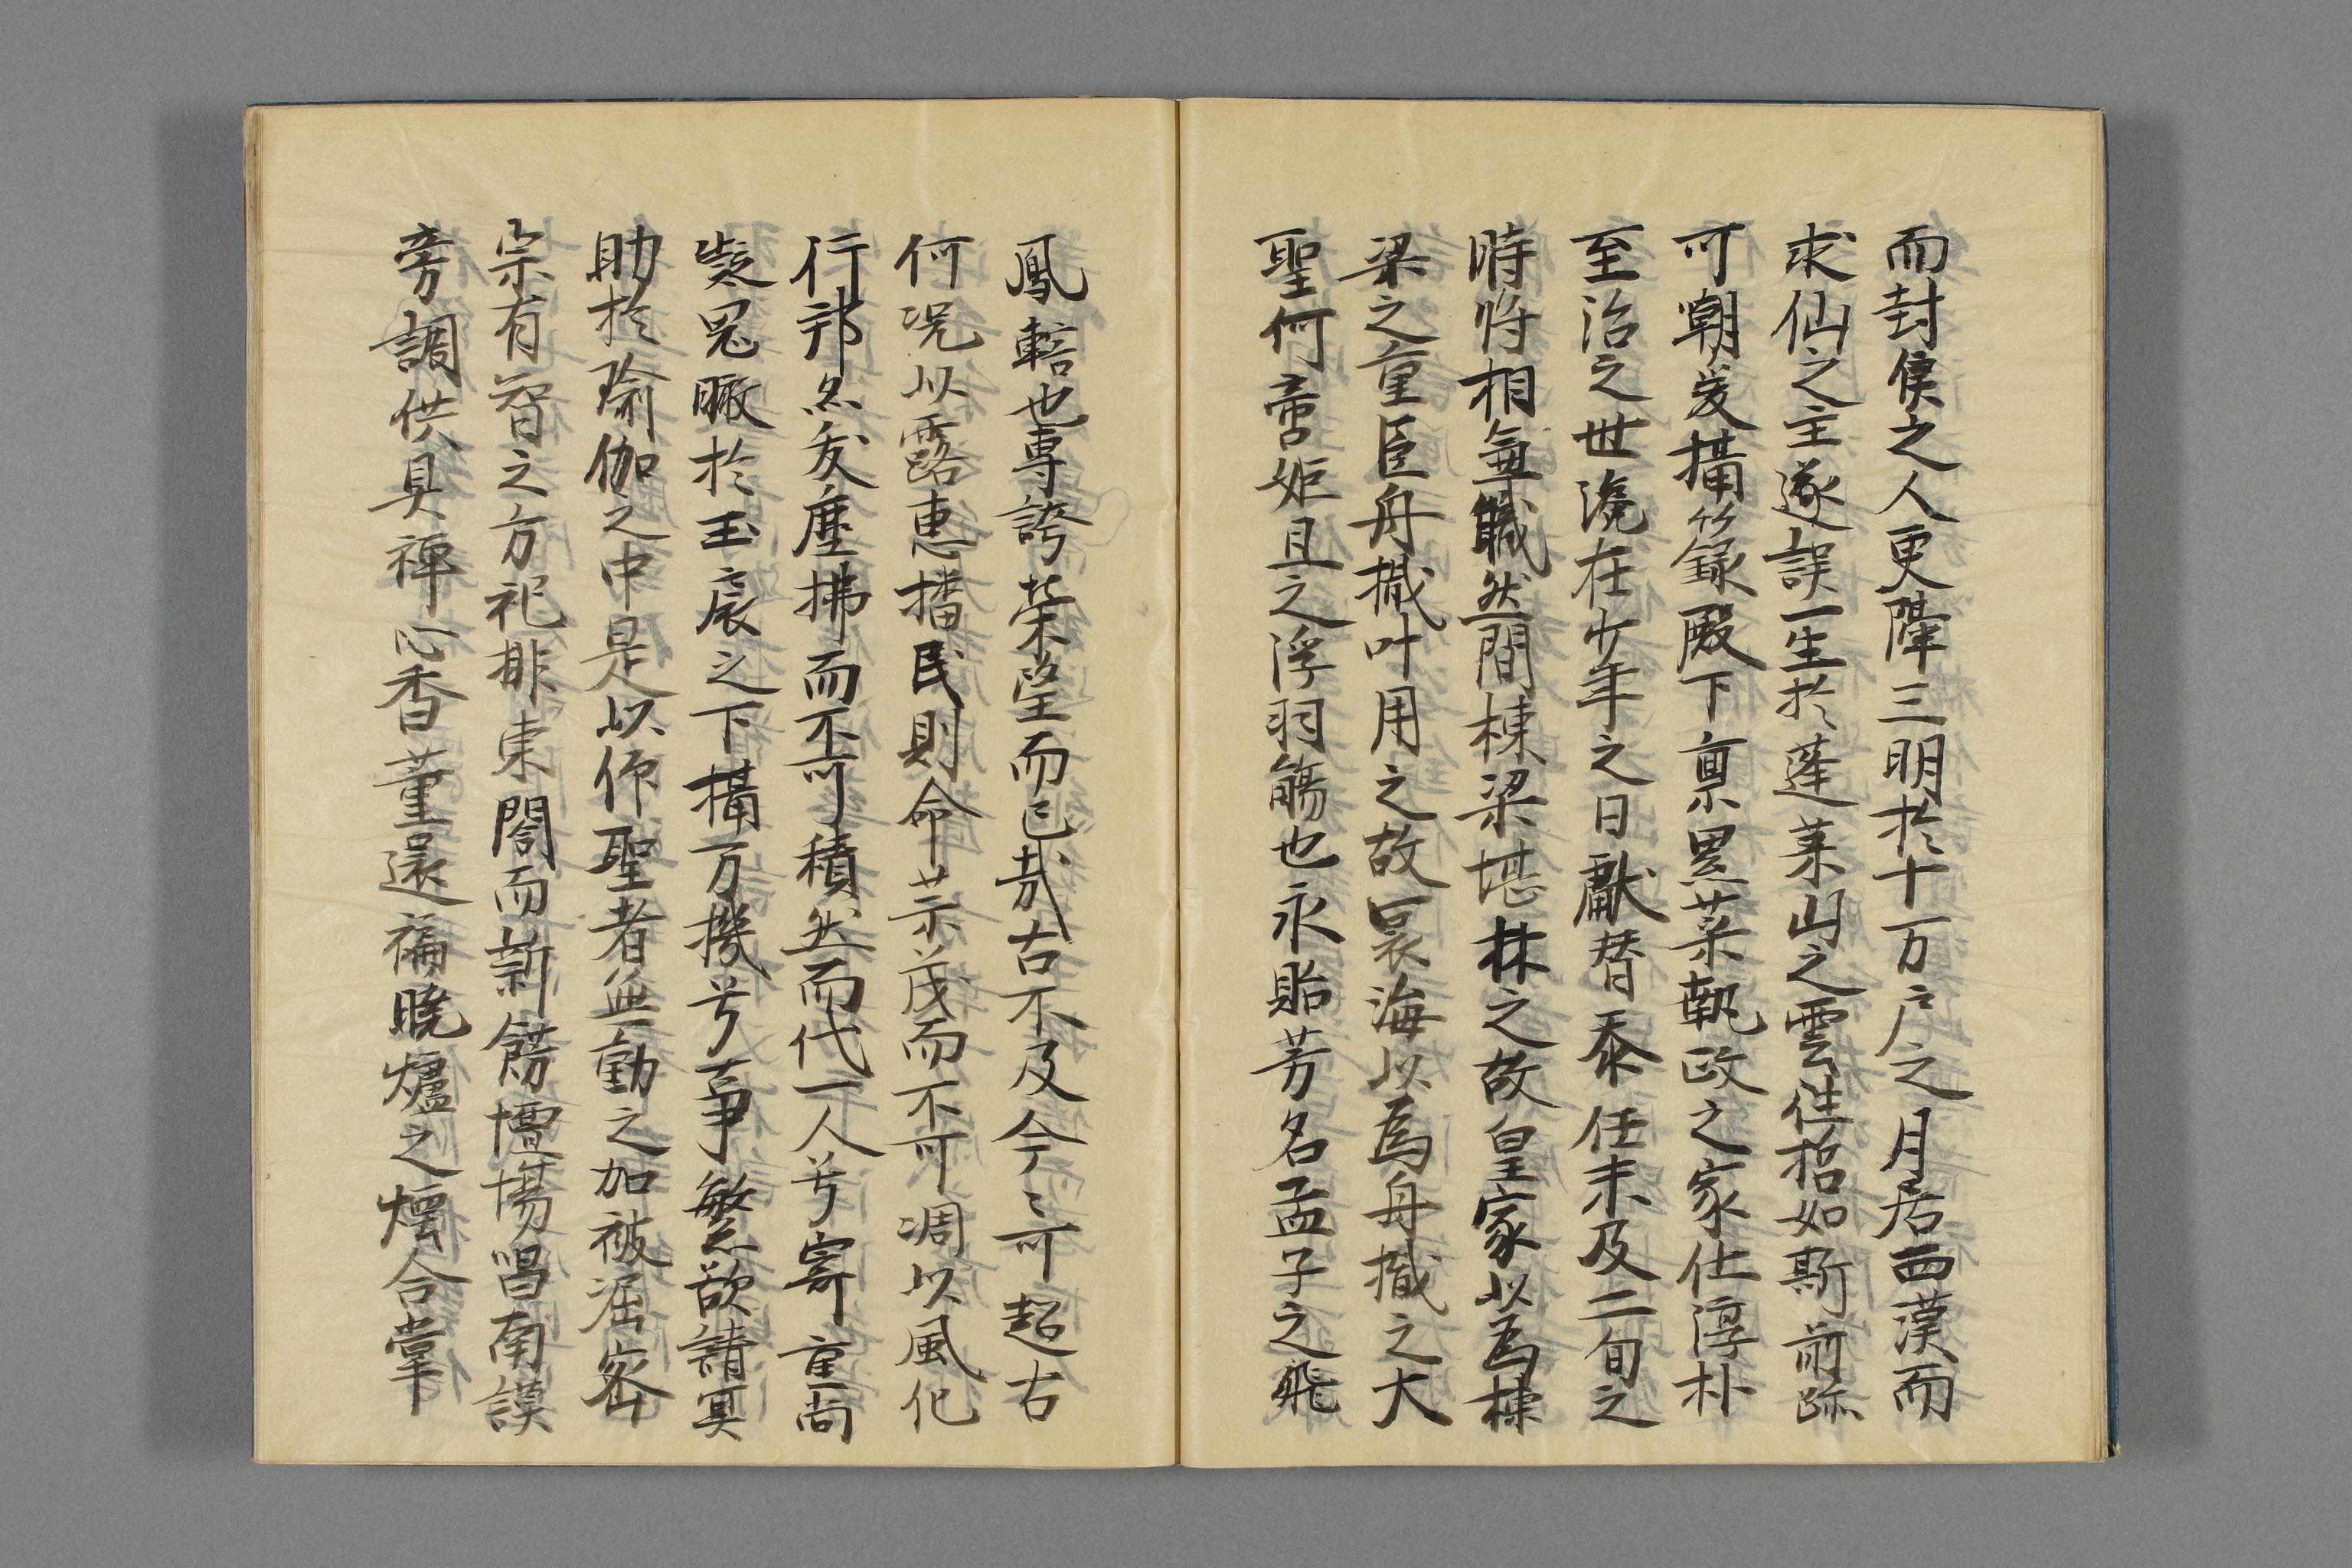 而封侯之人更隆三明於十万户之月居西漢而
求仙之主遂誤一生於蓬莱山之雲徃招如斯前跡
可嘲爰摂籙殿下禀累葉執政之家仕淳朴
至治之世漉在少年之日献替黍任未及二旬之
時将相無職然間棟梁堪林之故皇家以為棟
梁之重臣舟檝叶用之故四海以為舟檝之大
聖何啻姫旦之浮羽觴也永貽芳名孟子之飛
鳳轄也専誇栄望而已哉古不及今々可超古
何况以露恵播民則命茶茂而不可凋以風化
行邦然友塵拂而不可積然而代一人兮寄重尚
凝思瞰於玉扆之下摂万機兮事繁欲請冥
助於瑜伽之中是以作聖者無動之加被涯密
宗有習之方祀排東閤而新餝壇場唱南謨
旁調供具禅心香薫遠褊暁爐之煙合掌